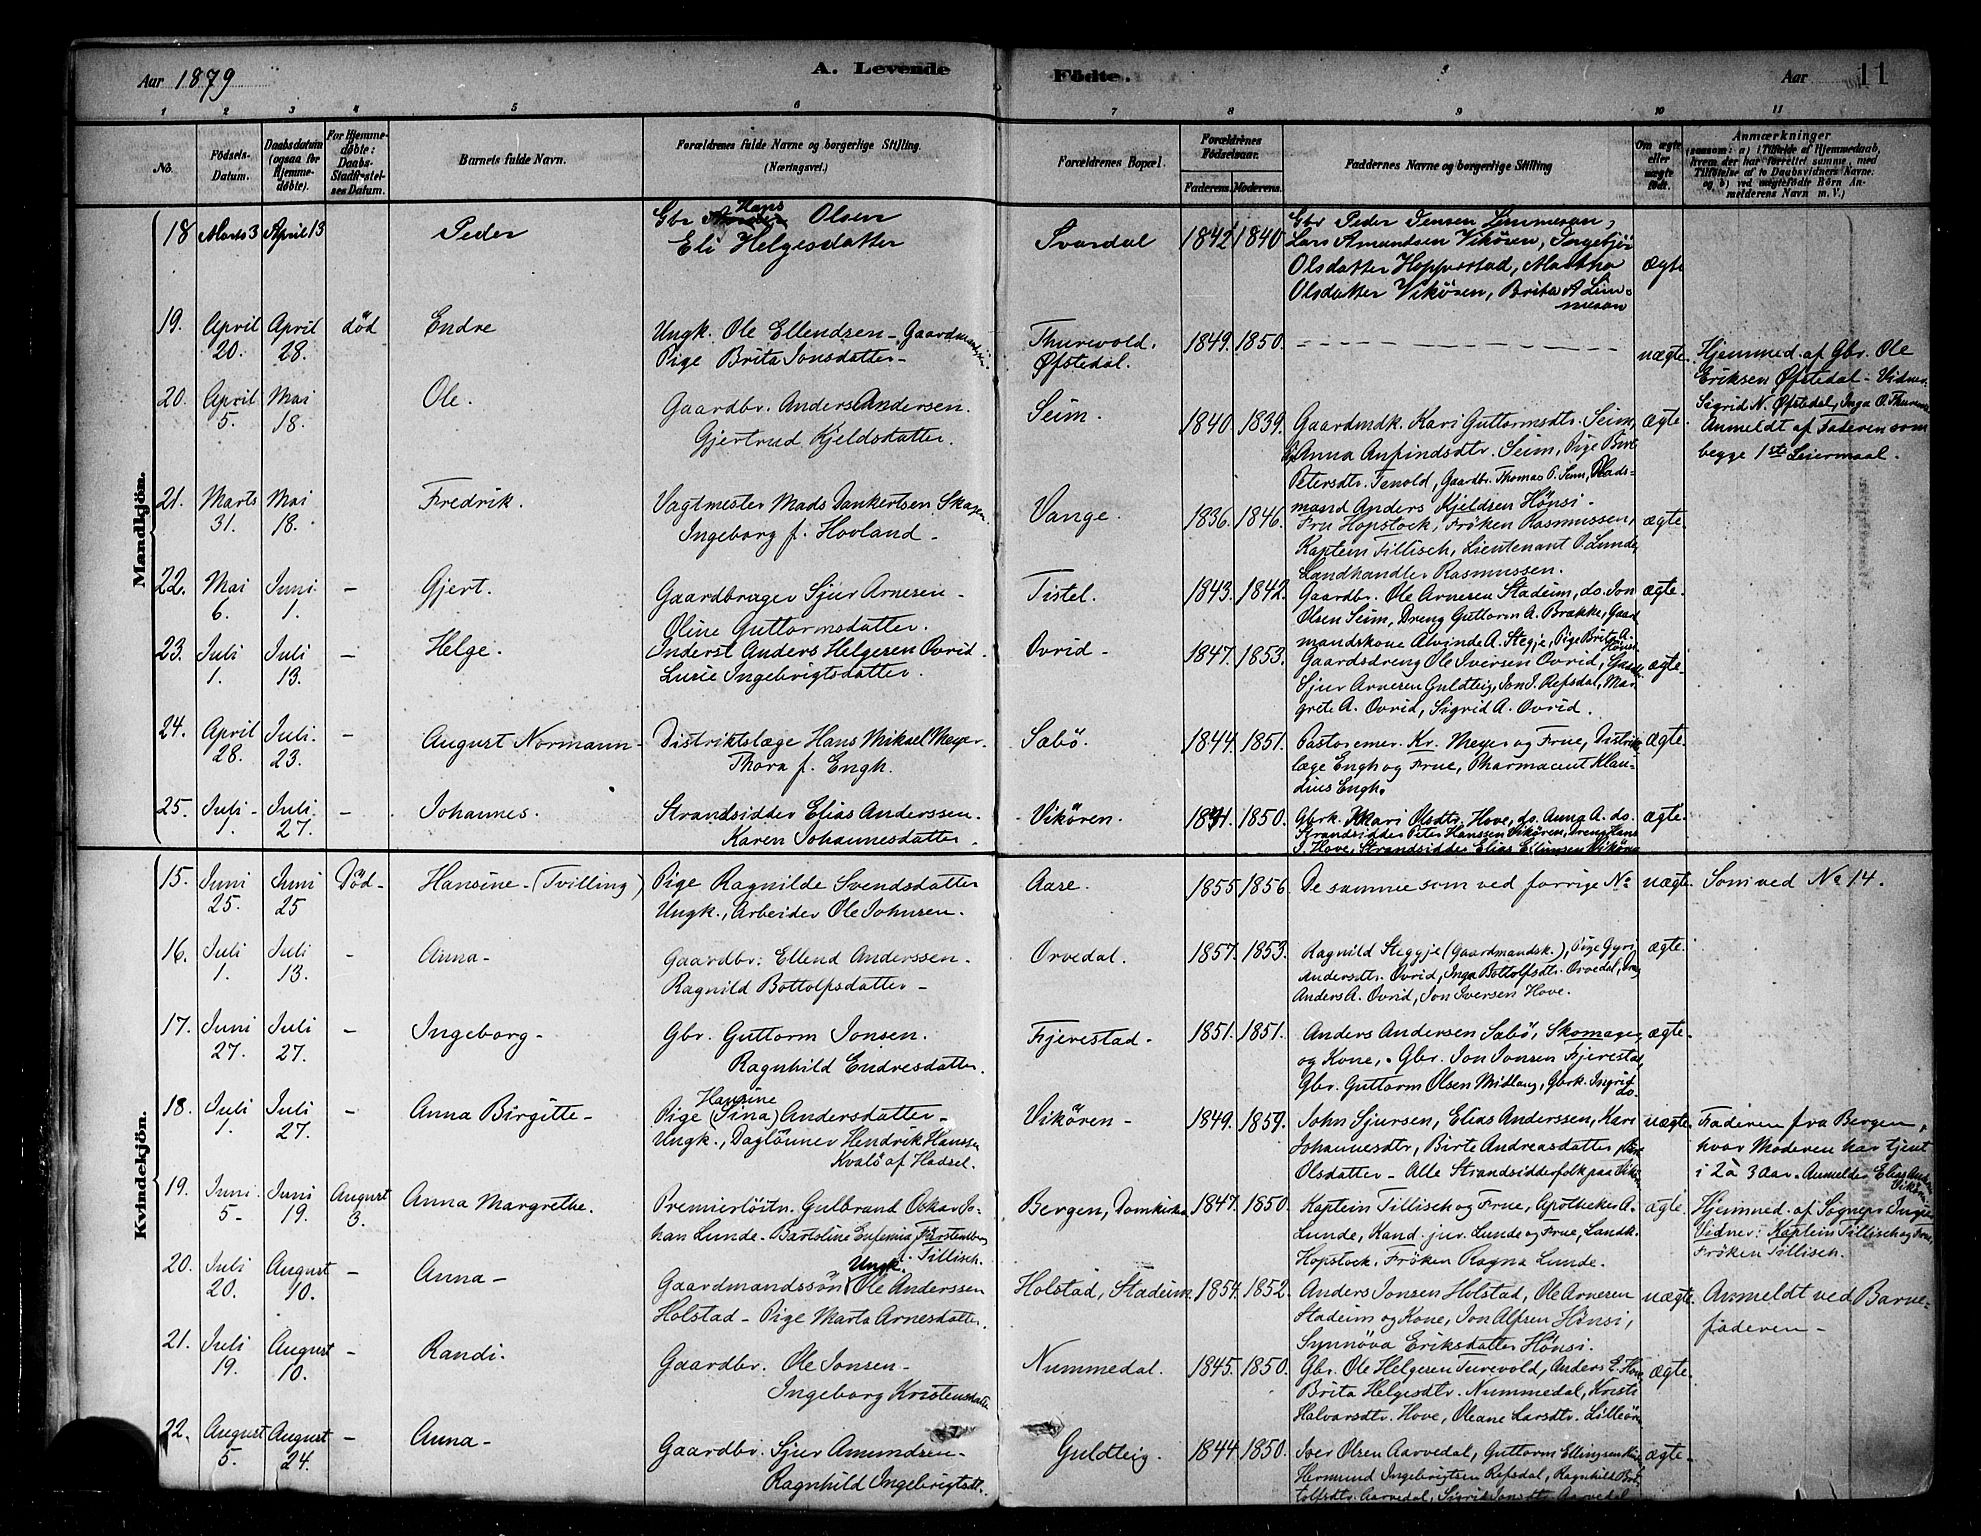 Aar 1879
A. Levende Födte.
Aar 11
1 2 3 4 5 6 7 8 9 10 11
No.
Födsels-Datum.
Daabsdatum (ogsaa for Hjemmedöbte).
For Hjemmedöbte: Daabs-Stadfæstelses Datum.
Barnets fulde Navn.
Forældrenes fulde Navne og borgerlige Stilling. (Næringsvei.)
Forældrenes Bopæl.
Forældrenes Födselsaar.
Faderens. Moderens.
Faddernes Navne og borgerlige Stilling
Om ægte eller uægte födt.
Anmærkninger
(saasom: a) i Tilfælde af Hjemmedaab, hvem der har forrettet samme, med Tilföielse af to Daabsvidners Navne: og b) ved uægtefödte Börn Anmelderens Navn m. V.)
Mandkjön.
18 Marts 3 April 13 Peder
Gbr Hans Olsen
Eli Helgesdatter
Svardal 1842 1840
Gbr Peder Jensen Limmesan,
Lars Amundsen Vikören, Ingebjör
Olsdatter Hopperstad, Martha
Olsdatter Vikören, Brita A Lim-
mesan
ægte
19. April 20. April 28. död Endre
Ungk. Ole Ellendsen - Gaardmandssön.
Pige Brita Jonsdatter -
Thurevold. Øfstedal. 1849. 1850. uægte.
Hjemmed. af Gbr. Ole
Eriksen Øfstedal - Vidner.
Sigrid N. Øfstedal, Inga O. Thurevold
Anmeldt af Faderen som
begge 1ste Leiermaal.
20. April 5. Mai 18. Ole.
Gaardbr. Anders Andersen.
Gjertrud Kjeldsdatter.
Seim. 1840. 1839.
Gaardmdk. Kari Guttormsdtr. Seim,
Anna Anfindsdtr. Seim, Pige Brit
Petersdtr. Tenold, Gaardbr. Thomas P. Seim, Plads-
mand Anders Kjeldsen Hönsi.
ægte.
21. Marts 31. Mai 18. Fredrik.
Vagtmester Mads Dankertsen Skagen
Ingeborg f. Hovland -
Vange. 1836. 1846.
Fru Hopstock, Fröken Rasmussen,
Kaptein Tillisch, Lieutenant O. Lunde,
Landhandler Rasmussen.
ægte.
22. Mai 6. Juni 1. - Gjert.
Gaardbruger Sjur Arnesen -
Oline Guttormsdatter.
Tistel. 1843. 1842.
Gaardbr. Ole Arnesen Stadeim, do. Jon
Olsen Seim, Dreng Guttorm A. Brække, Gaard
mandskone Alvinde A. Stegje, Pige Brita A.
Hönsi
ægte.
23. Juli 1. Juli 13. - Helge.
Inderst Anders Helgesen Ovrid.
Lusie Ingebrigtsdatter.
Ovrid - 1847. 1853.
Gaardsdreng Ole Iversen Ovrid,
Sjur Arnesen Guldteig, Jon J. Refsdal, Mar
grete A. Ovrid, Sigrid A. Ovrid.
ægte.
24. April 28. Juli. 23. - August Normann -
Distriktslæge Hans Mikael Meyer.
Thora f. Engh.
Sæbö. 1844. 1851.
Pastor emer. Kr. Meyer og Frue, Distrikts
læge Engh og Frue, Pharmaceut Klau-
dius Engh.
ægte.
25. Juli - 1. Juli. 27. - Johannes.
Strandsidder Elias Anderssen.
Karen Johannesdatter.
Vikören. 1850.
Gbrk. Kari Olsdtr. Hove, do. Anna A. do.
Strandsidder Peter Hanssen Vikören, Dreng Hans
J. Hove, Strandsidder Elias Ellingsen Vikören
ægte.
Kvindekjön.
15. Juni 25. Juni 25 Död - Hansine - (Tvilling)
Pige Ragnilde Svendsdatter
Ungk., Arbeider Ole Johnsen.
Aase. 1855. 1856.
De samme som ved forrige No
uægte. Som ved No 14.
16. Juli 1. Juli 13. - Anna -
Gaardbr: Ellend Anderssen.
Ragnild Bottolfsdatter -
Orvedal. 1857. 1853.
Ragnild Steggje (Gaardmandsk.), Pige Gyri
Andersdtr. Ovrid, Inga Bottolfsdtr. Orvedal,
Anders A. Ovrid, Jon Iversen Hove.
ægte.
17. Juni 27. Juli 27. - Ingeborg -
Gbr. Guttorm Jonsen.
Ragnhild Endresdatter.
Fjerestad - 1851. 1851.
Anders Andersen Sæbö, Skomager
og Kone, Gbr. Jon Jonsen Fjerestad,
Gbr. Guttorm Olsen Midlang, Gbrk. Ingrid
do.
ægte.
18. Juli 1. Juli 27. - Anna Birgitte -
Hansine
Pige (Sina) Andersdatter -
Ungk., Daglönner Hendrik Hanssen
Kvalö af Hadsel.
Vikören - 1849. 1859.
John Sjursen, Elias Anderssen, Kari
Johannesdtr, Birte Andreasdatter,
Olsdatter - Alle Strandsidderfolk paa Vikören
uægte.
Faderen fra Bergen,
hvor Moderen har tjent
i 2 à 3 Aar. Anmelder Elias Anders
Vikören
19. Juni. 5 - Juni 19. August 3. Anna Margrethe.
Premierlöitn. Gulbrand Oskar Jo-
han Lunde - Bartoline Eufemia Fürstenberg
f. Tillisch.
Bergen, Domkirke 1847. 1850.
Kaptein Tillisch og Frue, Apotheker A.
Lunde, Kand. jur. Lunde og Frue, Landk.
Hopstock, Fröken Ragna Lunde.
ægte.
Hjemmed. af Sognepr. Inger
Vidner: Kaptein Tillisch og Frue,
Fröken Tillisch.
20. Juli 20. August 10. - Anna -
Ungk.
Gaardmandssön Ole Anderssen
Holstad - Pige Marta Arnesdatter.
Holstad, Stadeim. 1854. 1852.
Anders Jonsen Holstad, Ole Arnesen
Stadeim og Kone, Jon Alfsen Hönsi,
Synnöva Eriksdatter Hönsi.
uægte.
Anmeldt ved Barne-
faderen -
21. Juli 19. August 10. - Randi.
Gaardbr. Ole Jonsen -
Ingeborg Kristensdatter
Nummedal. 1845. 1850.
Gbr. Ole Helgesen Turevold, Anders E. Hove
Brita Helgesdtr. Nummedal, Kristi
Halvarsdtr. Hove, Oleane Larsdtr. Lilleören
ægte.
22. August 5. August 24. - Anna -
Gaardbr. Sjur Amundsen -
Ragnhild Ingebrigtsdtr.
Guldteig. 1844 1850.
Iver Olsen Aarvedal, Guttorm Ellingsen
Hermund Ingebrigtsen Refsdal, Ragnhild Bot
tolfsdtr. Aarvedal, Sigrid Jonsdtr Aarvedal
ægte.